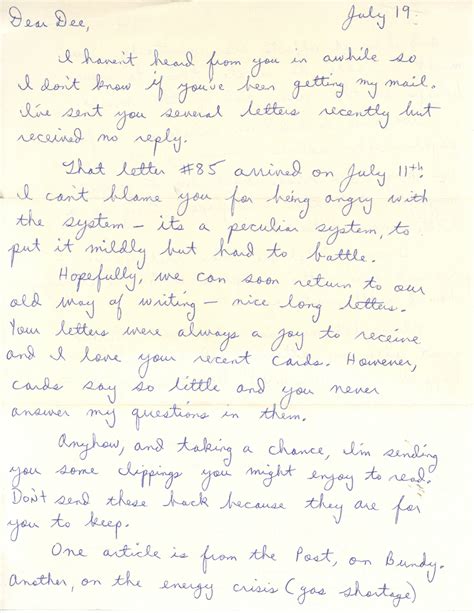 July 19
Dear Dee,
I haven't heard from you in awhile so
I don't know if you've been getting my mail.
I've sent you several letters recently but
received no reply.
That letter #85 arrived on July 11th.
I can't blame you for being angry with
the system – its a peculiar system, to
put it mildly but hard to battle.
Hopefully, we can soon return to our
old way of writing – nice long letters.
Your letters were always a joy to receive
and I love your recent cards. However,
cards say so little and you never
answer my questions in them.
Anyhow, and taking a chance, I'm sending
you some clippings you might enjoy to read.
Don't send these back because they are for
you to keep.
One article is from the Post, on Bundy.
Another, on the energy crisis (gas shortage)